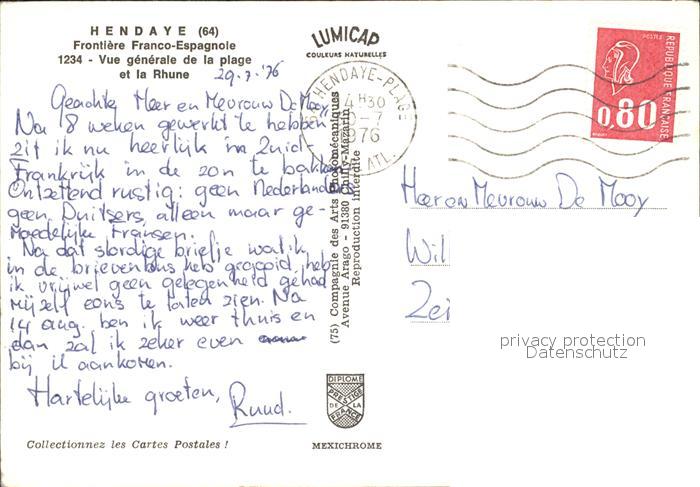 HENDAYE (64)
Frontière Franco-Espagnole
1234 - Vue générale de la plage
et la Rhune
29.7.'76
Geachte Heer en Mevrouw De Mooy
Na 8 weken gewerkt te hebben
zit ik nu heerlijk in Zuid-
Frankrijk in de zon te bakken
Ontzettend rustig: geen Nederlanders
geen Duitsers, alleen maar ge-
moedelijke Fransen.
Na dat slordige briefje wat ik
in de brievenbus heb gegooid, heb
ik vrijwel geen gelegenheid gehad
mijzelf eens te laten zien. Na
14 aug. ben ik weer thuis en
dan zal ik zeker even
bij U aankomen.
Hartelijke groeten,
Ruud.
Collectionnez les Cartes Postales !
LUMICAP
COULEURS NATURELLES
(75) Compagnie des Arts Photomécaniques
Avenue Arago - 91380 Chilly-Mazarin
Reproduction interdite
DIPLOME
PRESTIGE
DE LA
FRANCE
MEXICHROME
HENDAYE-PLAGE
14 H30
0-7
1976
ATL.
POSTES
REPUBLIQUE FRANÇAISE
0,80
Heer en Mevrouw De Mooy
Wil
Zei
privacy protection
Datenschutz